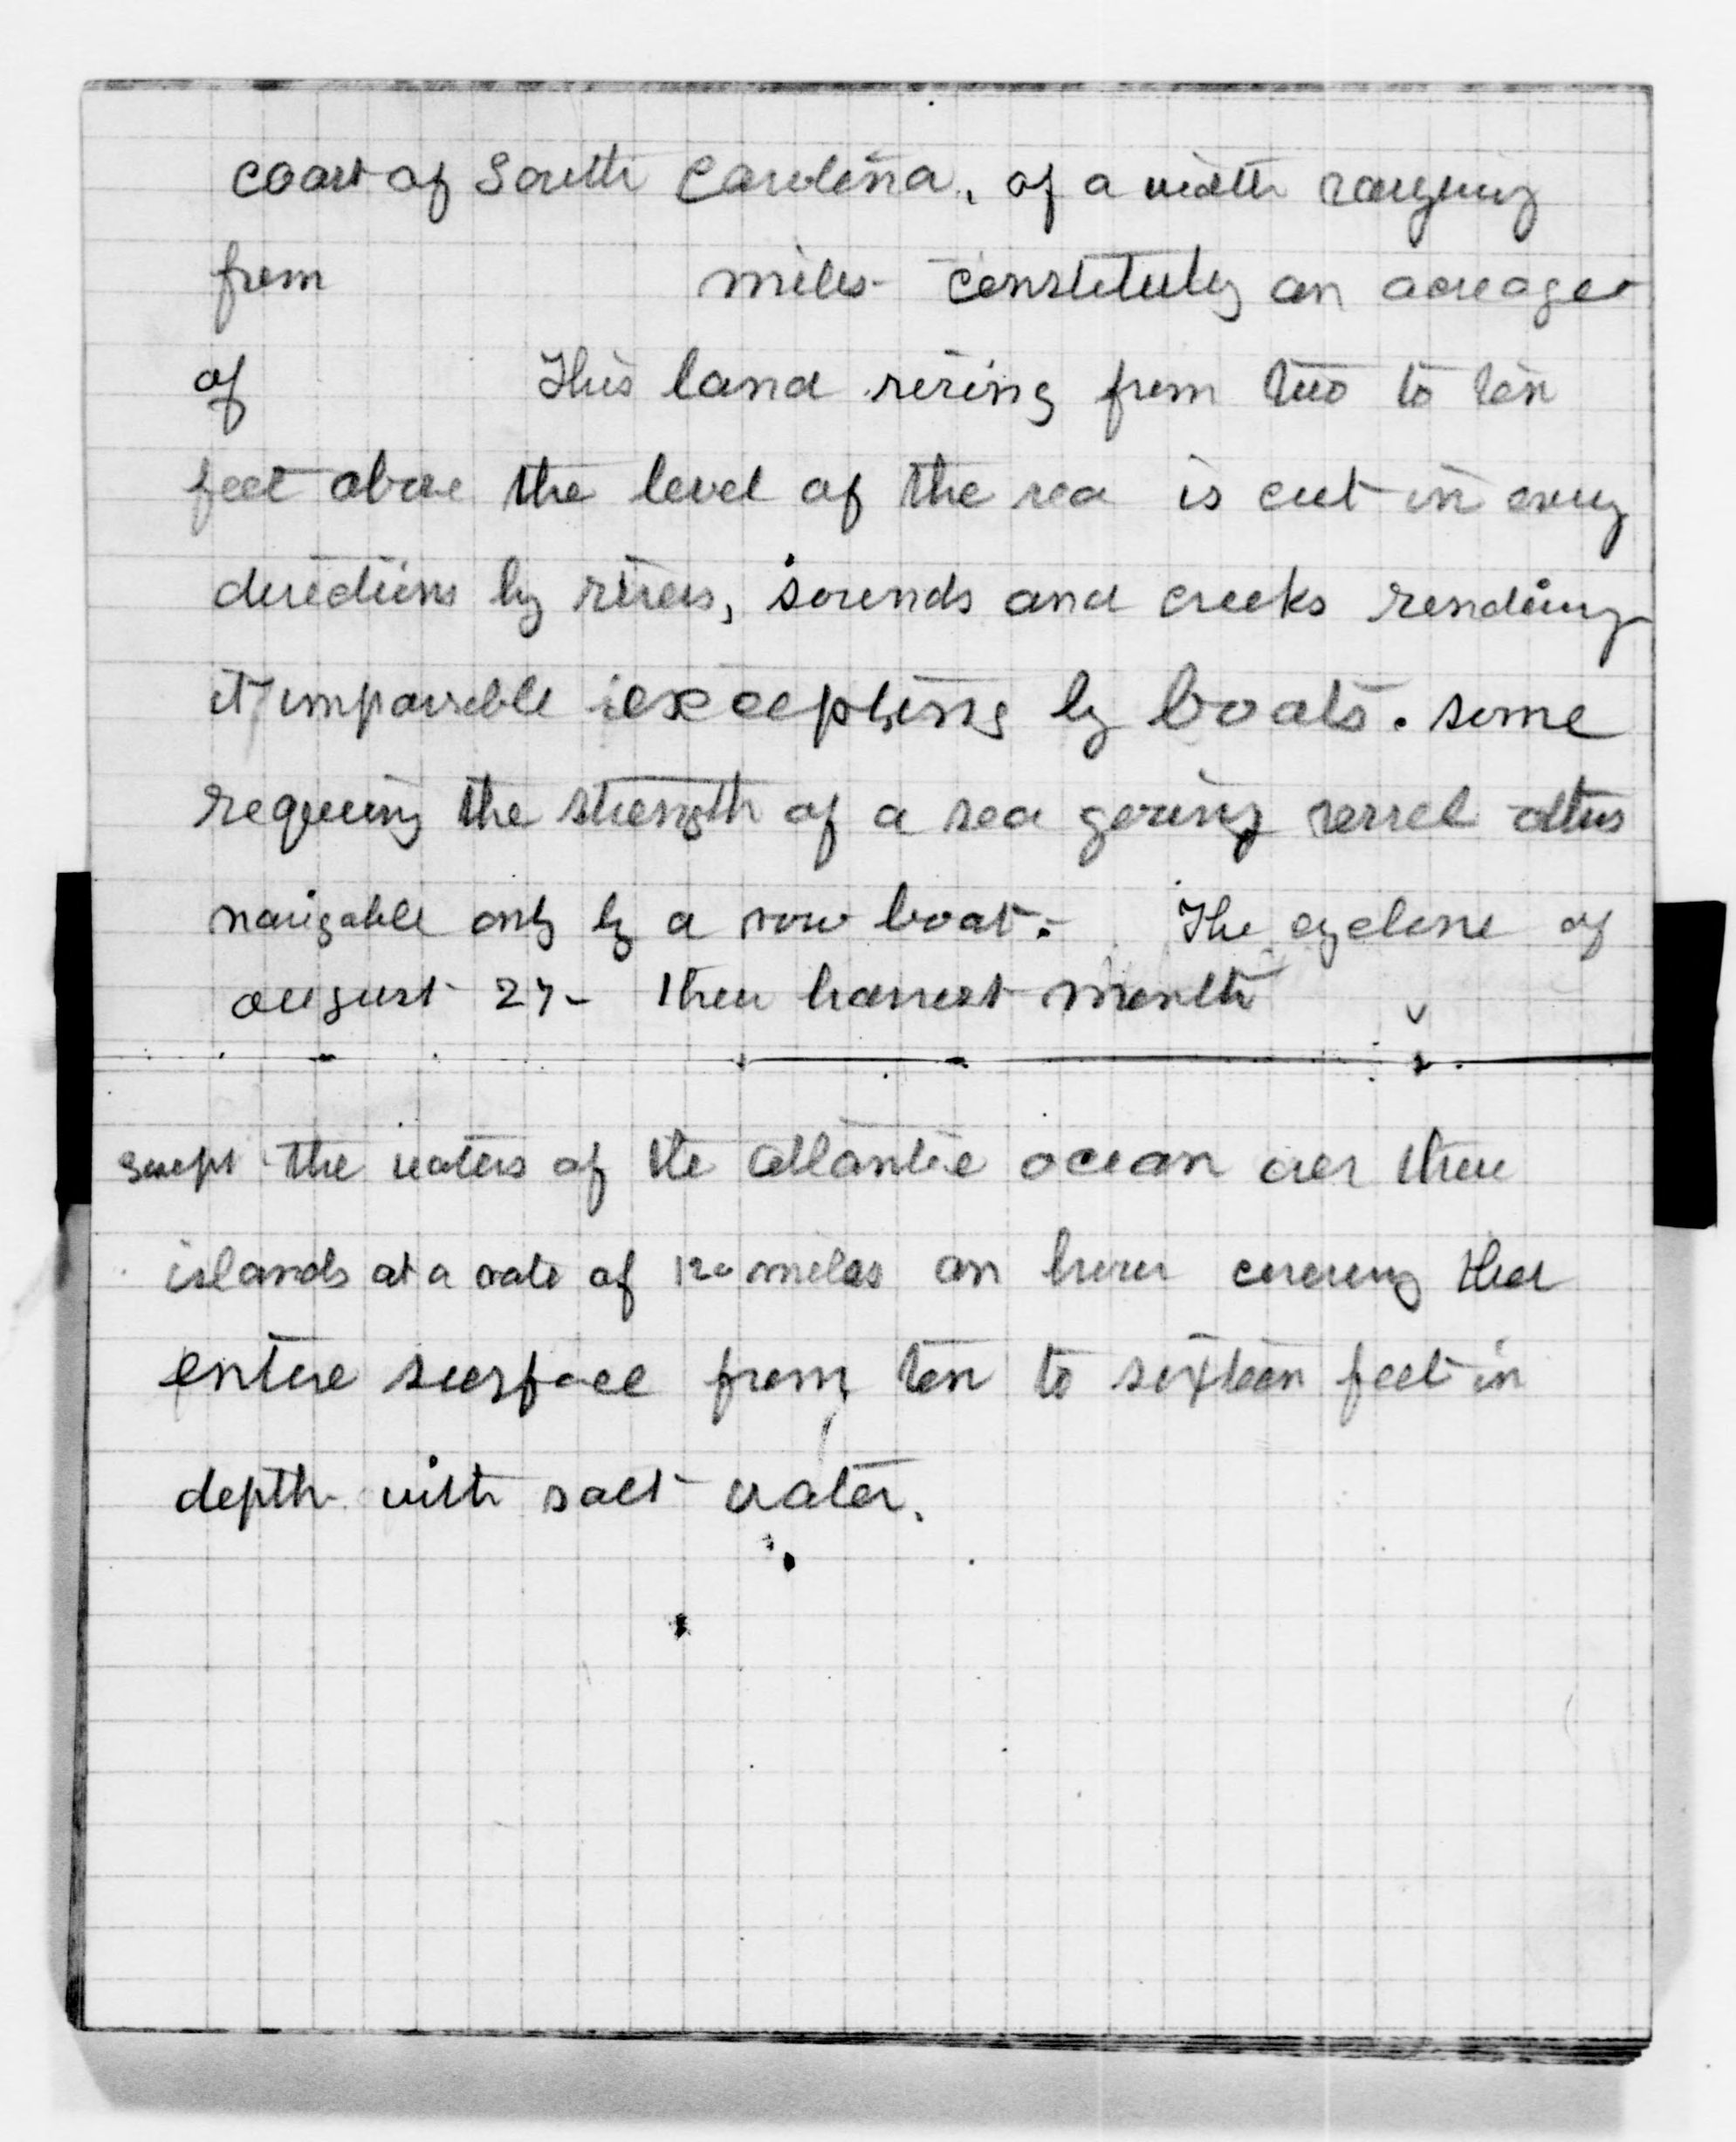 coast of South Carolina, of a width ranging
from miles - constituting an acreage
of This land rising from two to ten
feet above the level of the sea is cut in every
directions by rivers, sounds and creeks rending
it impassable excepting by boats. some
requiring the strength of a sea going vessel others
navigable only by a row boat. - The cyclone of
august 27 - their harvest month
swept the waters of the atlantic ocean over these
islands at a rate of 120 miles an hour covering the
entire surface from ten to sixteen feet in
depth with salt water.